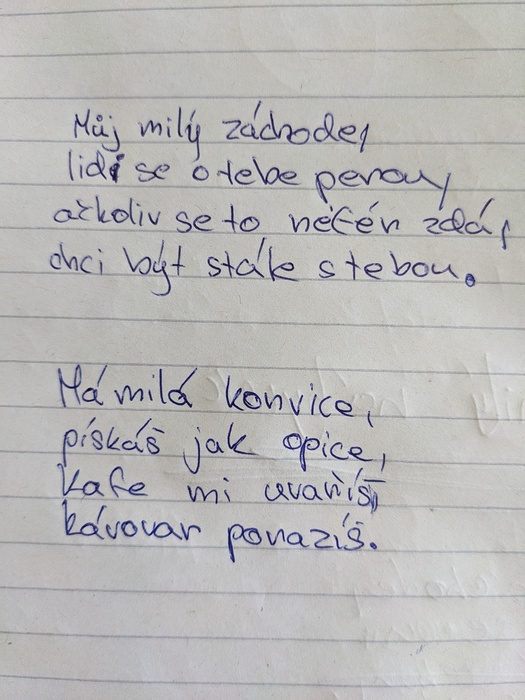 Můj milý záchode,
lidi se o tebe perou,
ačkoliv se to něčím zdá,
chci být stále s tebou.
Má milá konvice,
pískáš jak opice,
kafe mi uvaříš,
kávovar porazíš.